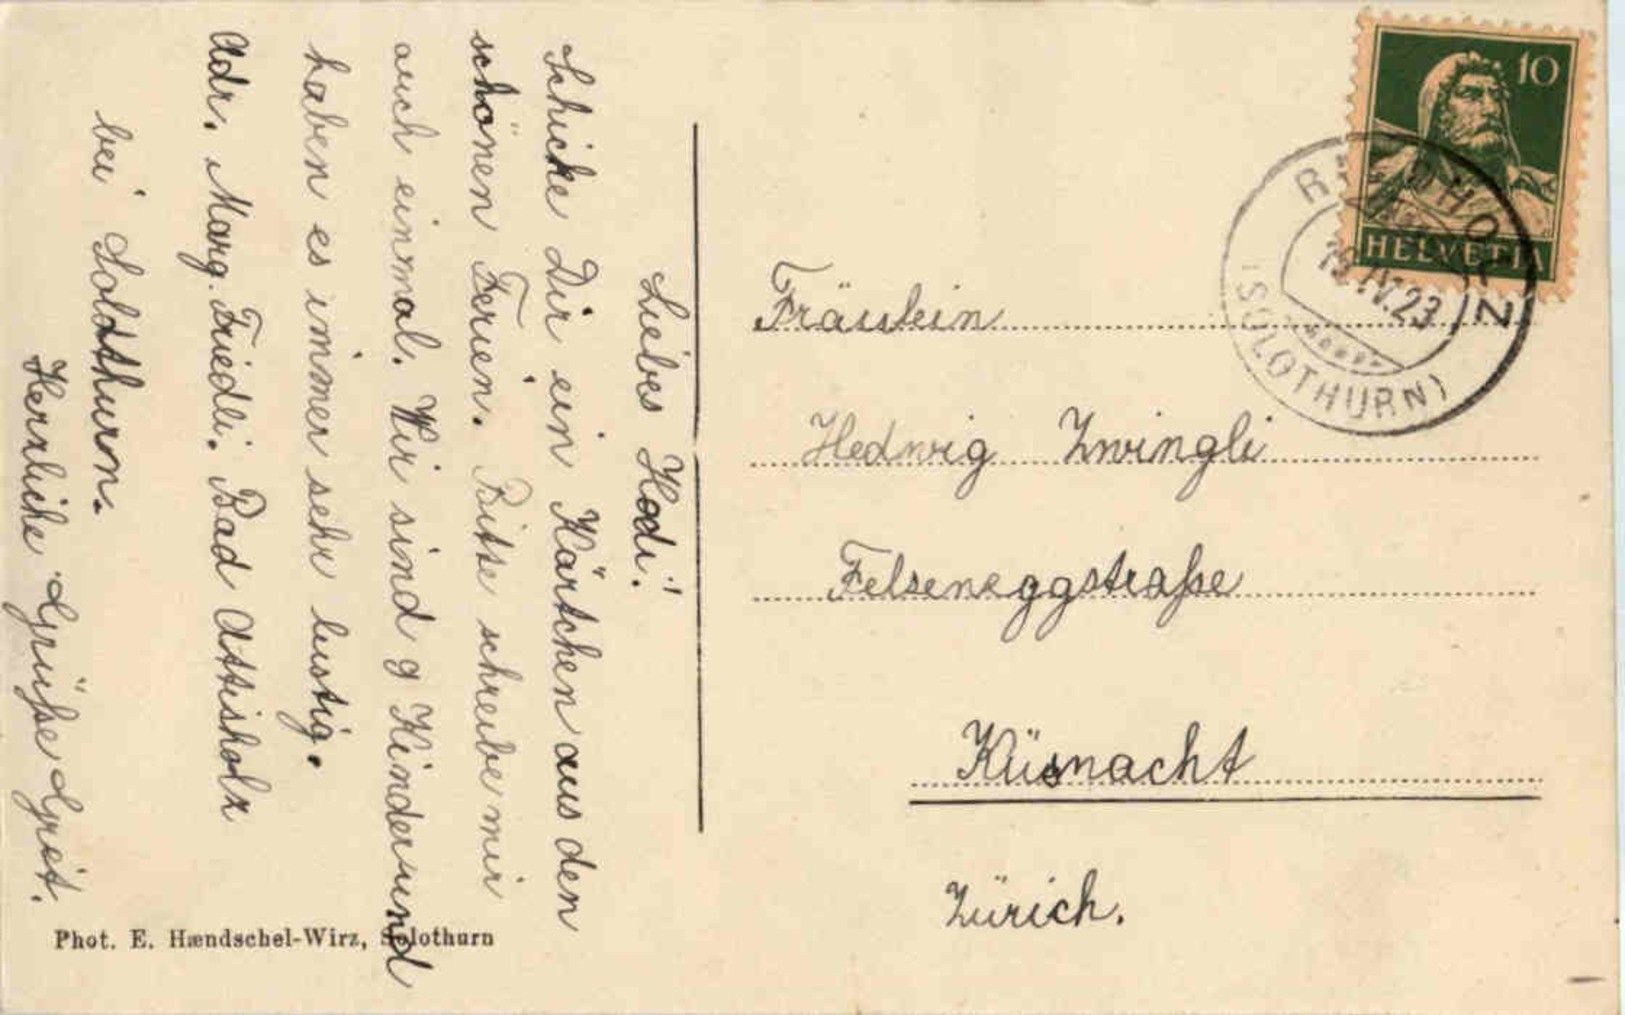 Liebes Hodi!
Schicke Dir ein Kärtchen aus den
schönen Ferien. Bitte schreibe mir
auch einmal. Wir sind 9 Kinder und
haben es immer sehr lustig.
Adr. Marg. Friedli. Bad Attisholz
bei Soldthurn.
Herzliche Grüße Gret.
Phot. E. Hændschel-Wirz, Solothurn
10
HELVETIA
HOLZ
IV.23
(SOLOTHURN)
Fräulein
Hedwig Zwingli
Felseneggstraße
Küsnacht
Zürich.